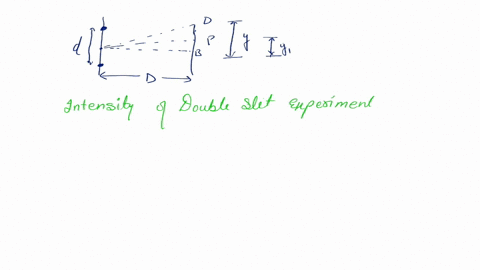 D
d P y y₁
B
D
Intensity of Double slet Experiment